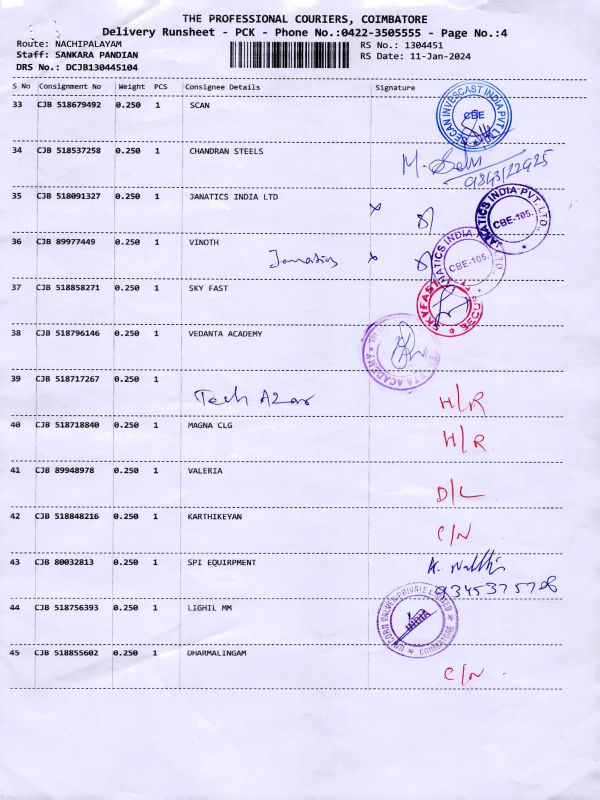 THE PROFESSIONAL COURIERS, COIMBATORE
Delivery Runsheet - PCK - Phone No.:0422-3505555 - Page No.:4
Route: NACHIPALAYAM RS No.: 1304451
Staff: SANKARA PANDIAN RS Date: 11-Jan-2024
DRS No.: DCJB130445104
S No Consignment No Weight PCS Consignee Details Signature
33 CJB 518679492 0.250 1 SCAN
SECAN INVESCAST INDIA PVT LTD CBE
34 CJB 518537258 0.250 1 CHANDRAN STEELS
9843122925
35 CJB 518091327 0.250 1 JANATICS INDIA LTD
JANATICS INDIA PVT. LTD. CBE-105.
36 CJB 89977449 0.250 1 VINOTH
Janatics
JANATICS INDIA LTD. CBE-105.
37 CJB 518858271 0.250 1 SKY FAST
SKYFAST SECU
38 CJB 518796146 0.250 1 VEDANTA ACADEMY
ACADEMY
39 CJB 518717267 0.250 1
Tech H/R
40 CJB 518718840 0.250 1 MAGNA CLG
H/R
41 CJB 89948978 0.250 1 VALERIA
D/L
42 CJB 518848216 0.250 1 KARTHIKEYAN
C/N
43 CJB 80032813 0.250 1 SPI EQUIRPMENT
9345375708
44 CJB 518756393 0.250 1 LIGHIL MM
VALVES PRIVATE LIMITED INDIA COIMBATORE
45 CJB 518855602 0.250 1 DHARMALINGAM
C/N